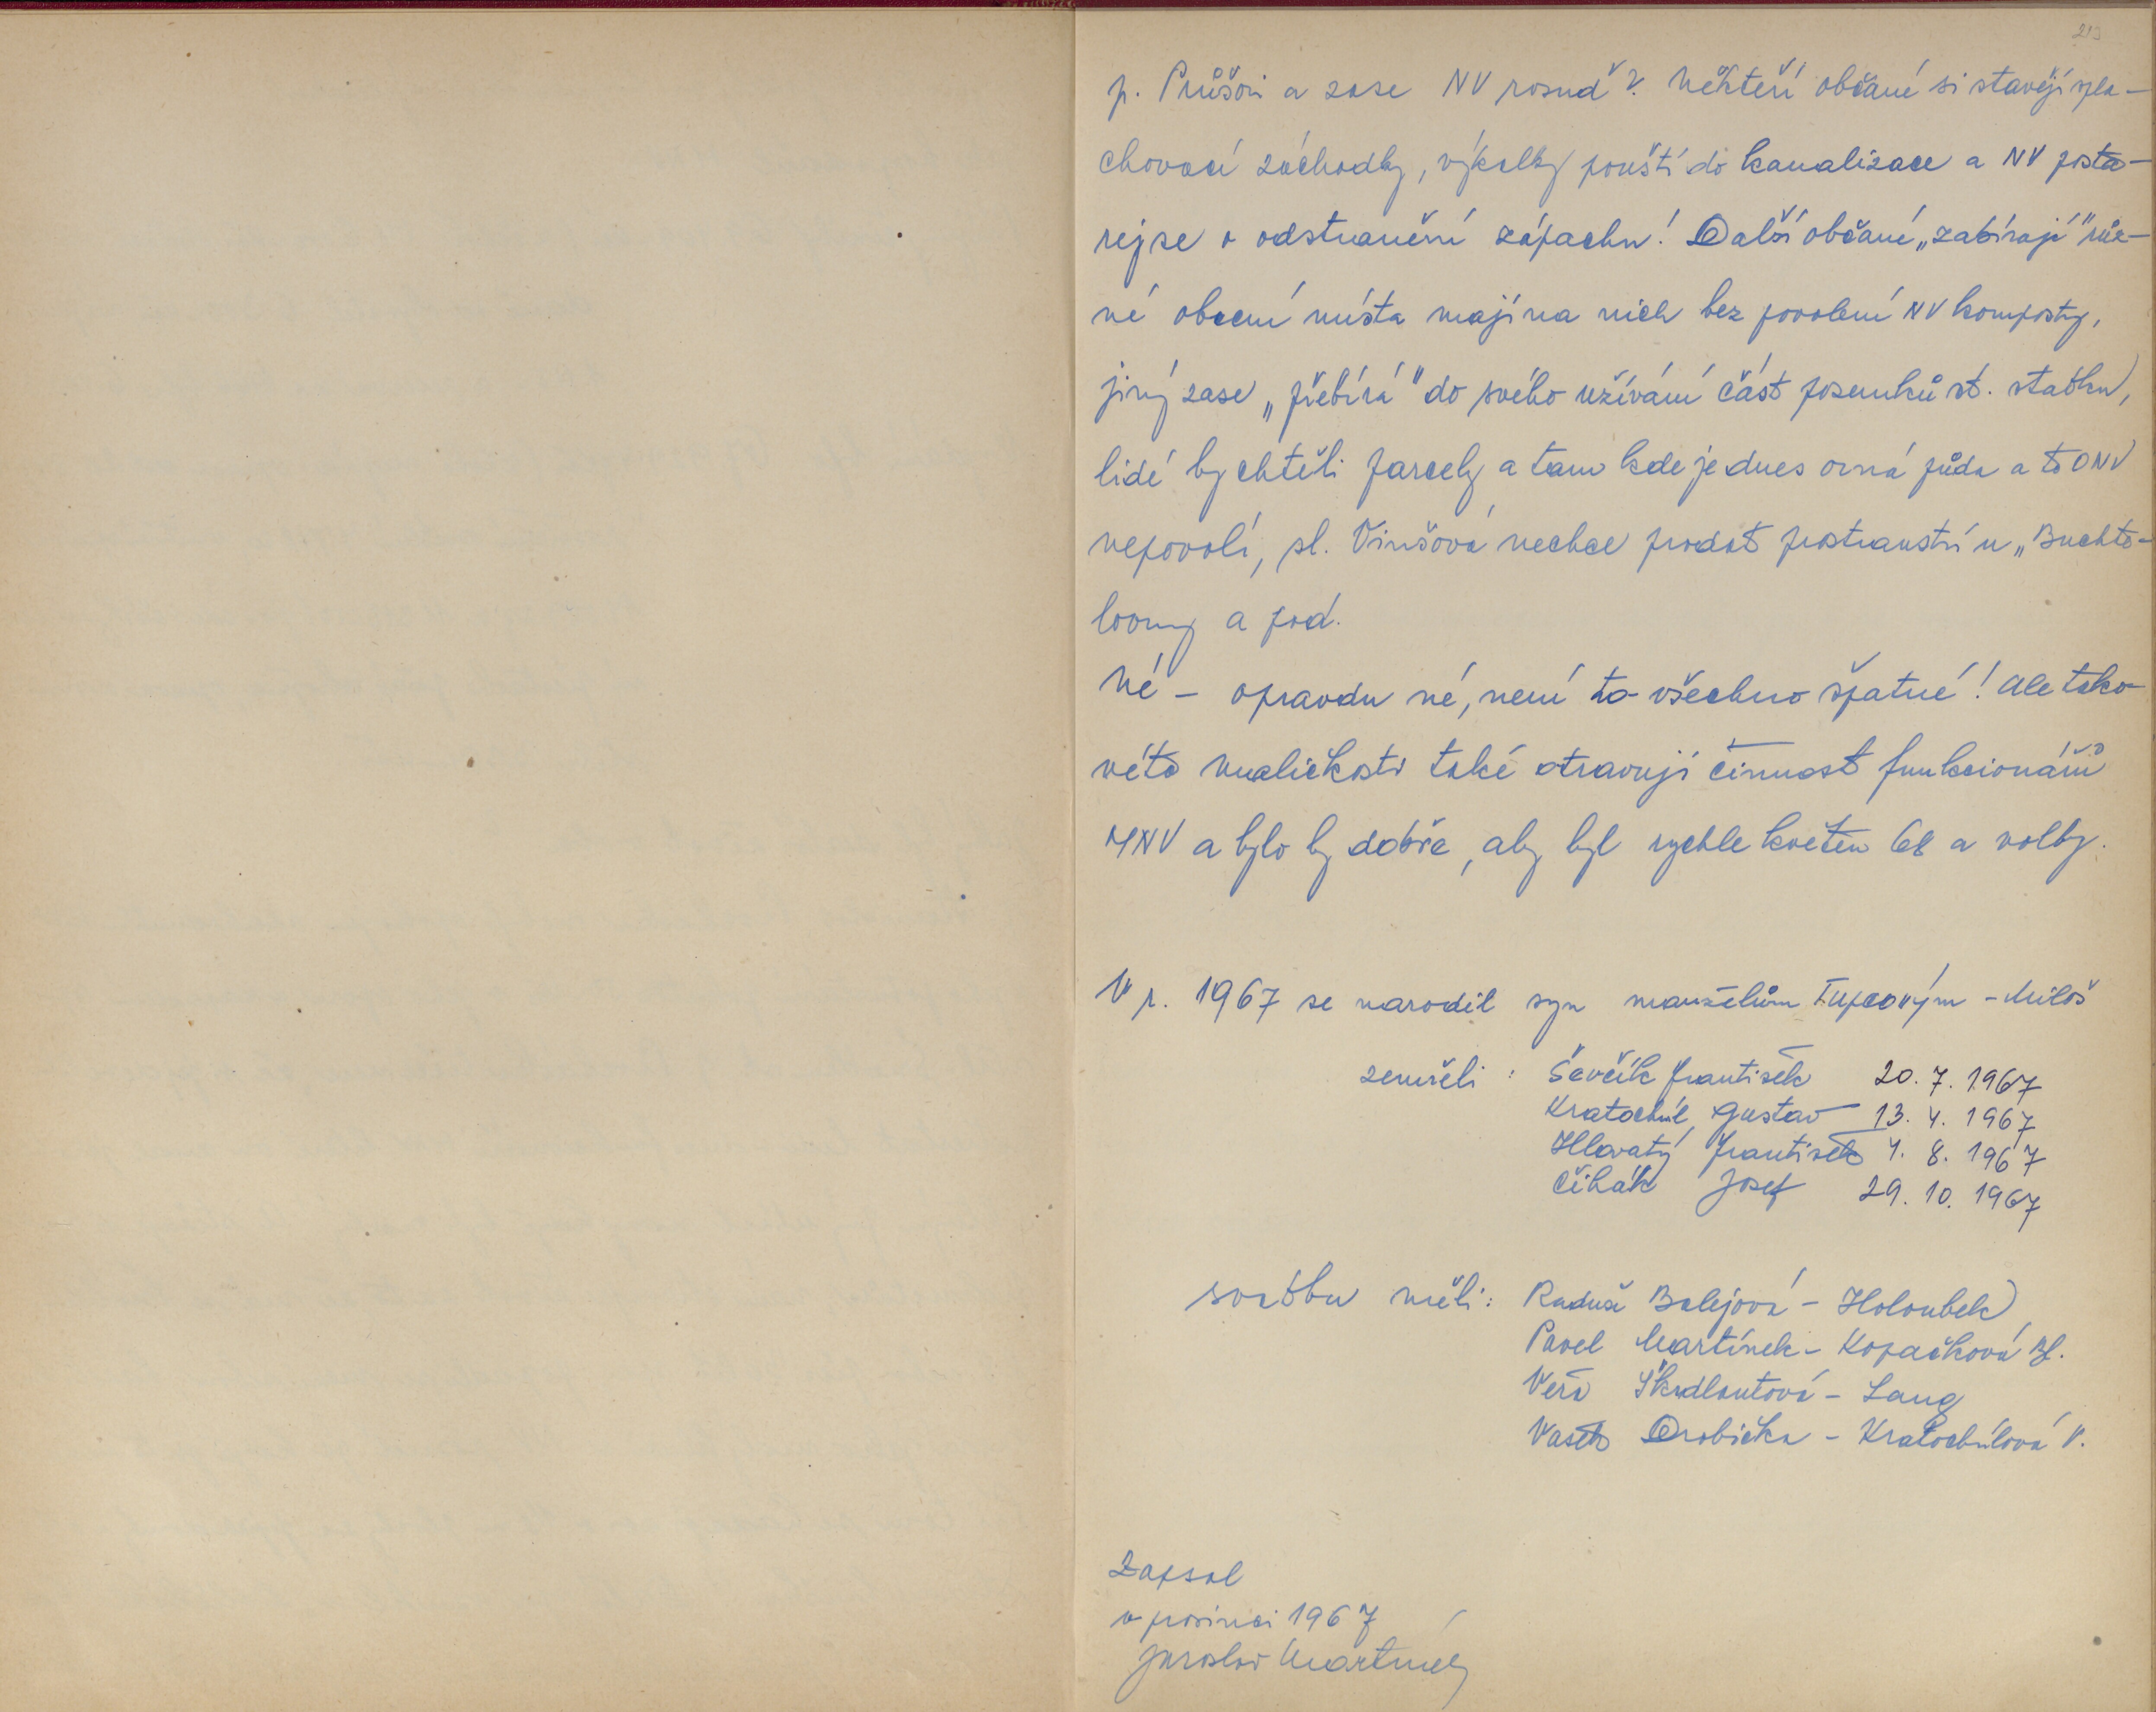 213
p. Průšovi a zase NV rosuď?. Někteří občané si stavějí spla-
chovací záchodky, výkaly pouští do kanalizace a NV posta-
rej se o odstranění zápachu! Další občané „zabírají" růz-
né obecní místa mají na nich bez povolení NV komposty,
jiný zase „přebírá" do svého užívání část pozemků st. statku,
lidé by chtěli parcely a tam kde je dnes orná půda a to ONV
nepovolí, sl. Vinšová nechce prodat prostranství u „Buchto-
lovny a pod.
Né - opravdu né, není to všechno špatné! Ale tako-
véto maličkosti také otravují činnost funkcionářů
MNV a bylo by dobře, aby byl rychle květen 68 a volby.
V r. 1967 se narodil syn manželům Tupcovým - Miloš
zemřeli : Ševčík František 20. 7. 1967
Kratochvíl Gustav 13. 4. 1967
Hlavatý František 4. 8. 1967
Čihák Josef 29. 10. 1967
svatbu měli: Raduš Balejová - Holoubek
Pavel Martínek - Kopačková Bl.
Věra Škrdlantová - Lang
Vašek Drobička - Kratochvílová V.
Zapsal
v prosinci 1967
Jaroslav Martínek